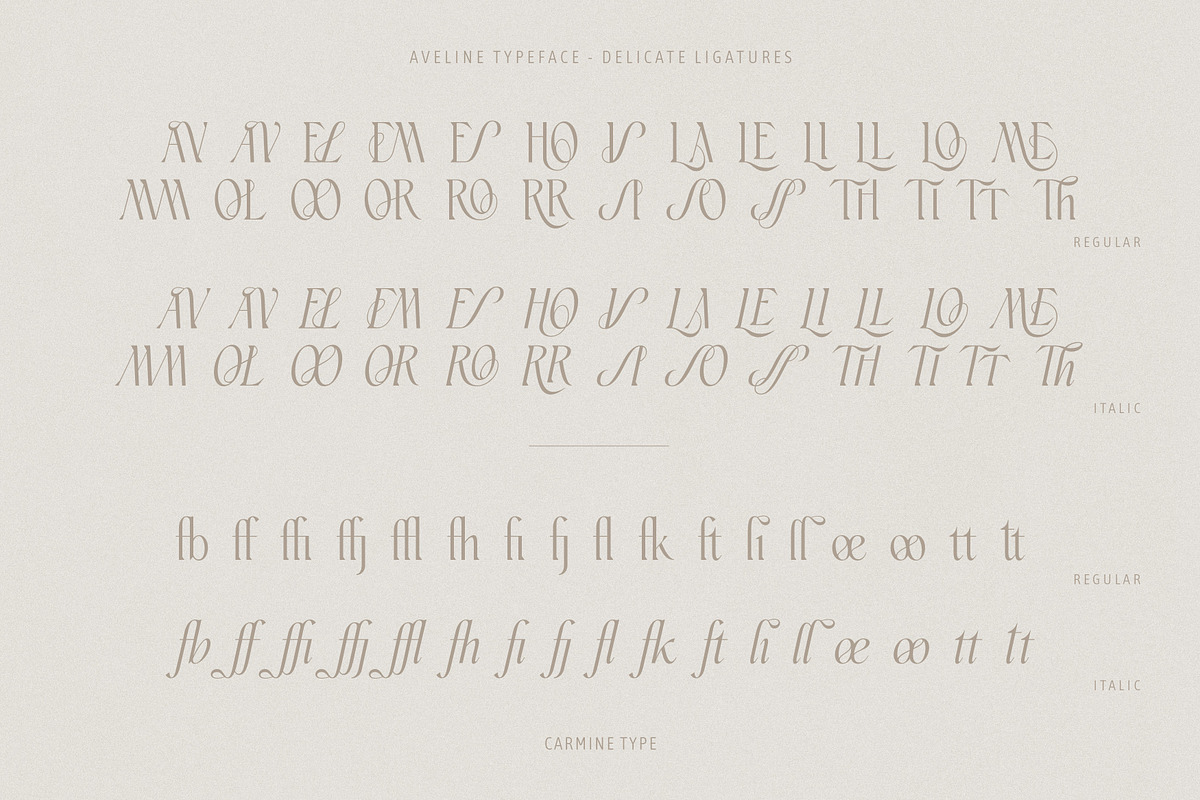 AVELINE TYPEFACE - DELICATE LIGATURES
AV AV EL EM ES HO IS LA LE LI LL LO ME
MM OL OO OR RO RR SI SO SS TH TI TT Th
REGULAR
AV AV EL EM ES HO IS LA LE LI LL LO ME
MM OL OO OR RO RR SI SO SS TH TI TT Th
ITALIC
fb ff ffi ffj ffl fh fi fj fl fk ft li ll œ oo tt tt
REGULAR
fb ff ffi ffj ffl fh fi fj fl fk ft li ll œ oo tt tt
ITALIC
CARMINE TYPE